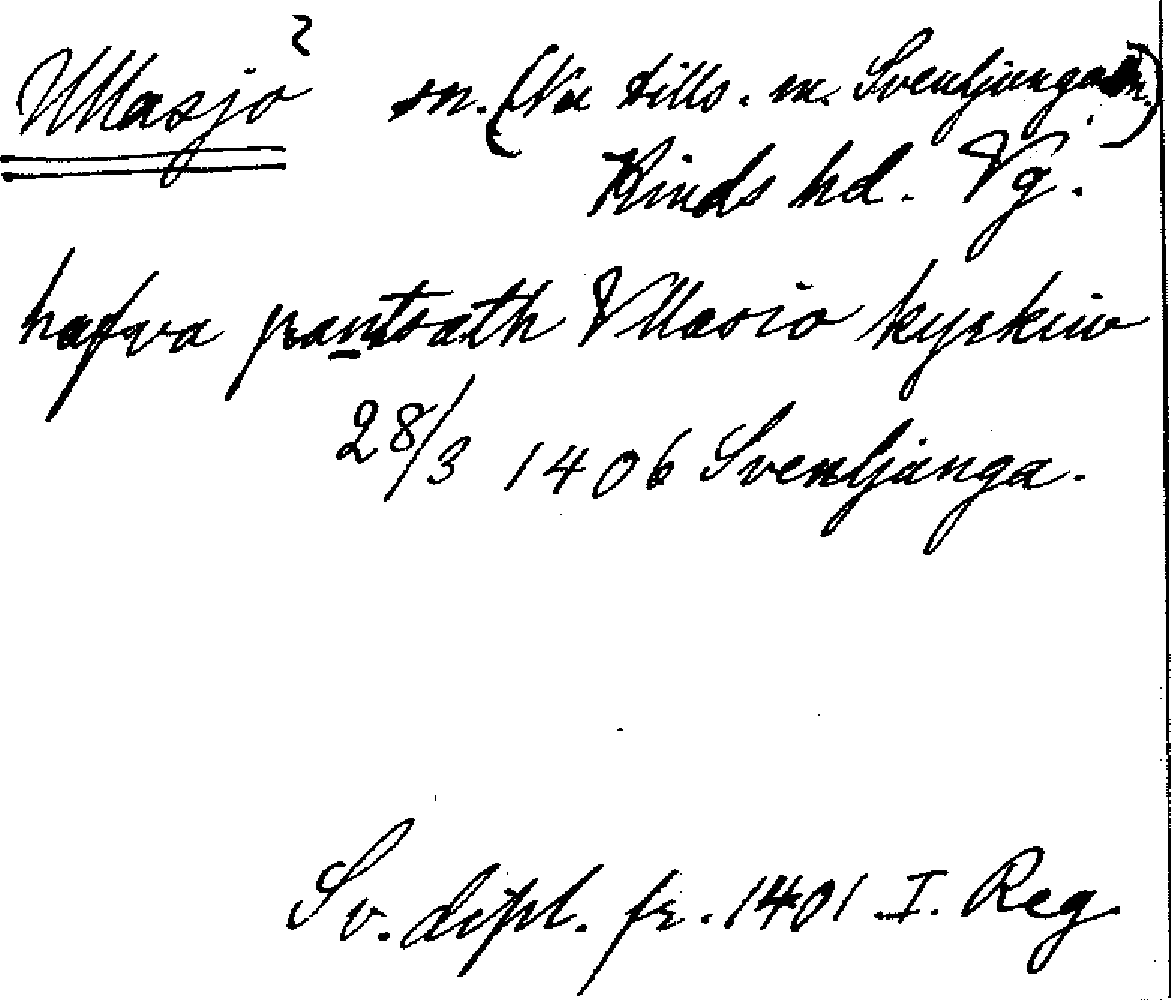 Ullasjö 2 sn. (Nu tills. m. Svenljunga sn.)
Kinds hd. Vg.
hafva pantsath Vllasio kyrkiw
28/3 1406 Svenljunga.
Sv. dipl. fr. 1401 I. Reg.